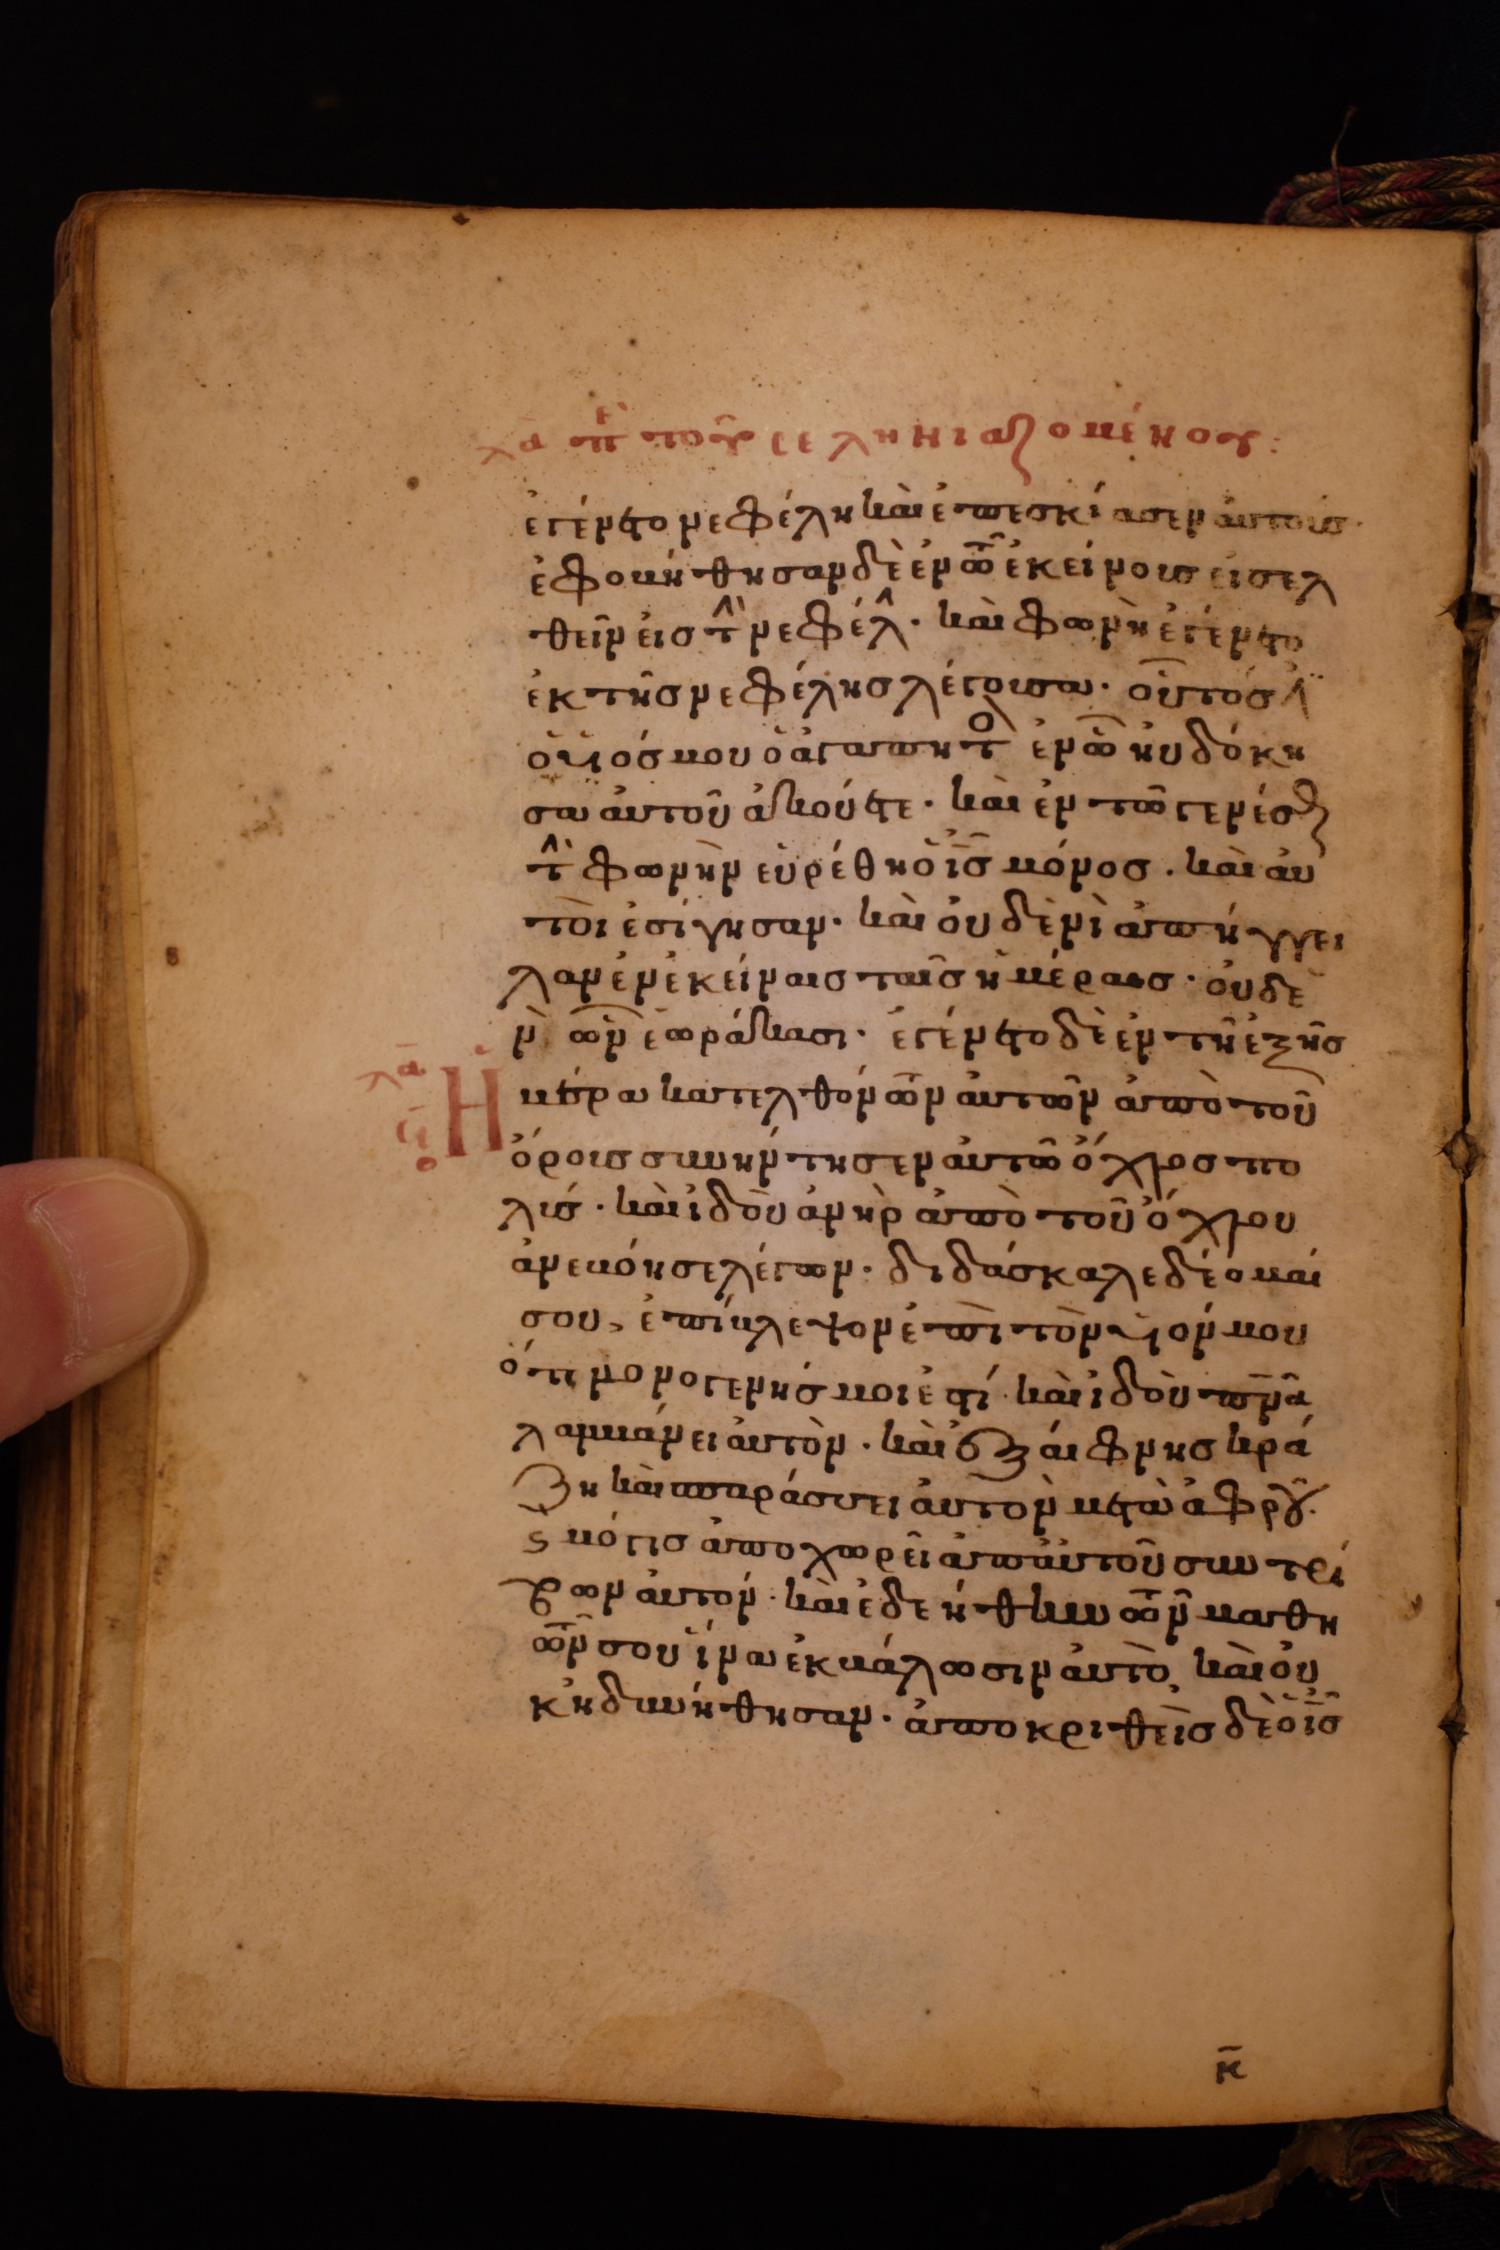 ἐγένετο νεφέλη καὶ ἐπεσκίασεν αὐτούς·
ἐφοβήθησαν δὲ ἐν τῶ ἐκείνους εἰσελ
θεῖν εἰς τὴν νεφέλην· καὶ φωνὴ ἐγένετο
ἐκ τῆς νεφέλης λέγουσα· οὗτός ἐστιν
ὁ υἱός μου ὁ ἀγαπητὸς ἐν ᾧ ηὐδόκη
σα αὐτοῦ ἀκούετε· καὶ ἐν τῶ γενέσθαι
τὴν φωνὴν εὑρέθη ὁ ἰς μόνος· καὶ αὐ
τοὶ ἐσίγησαν· καὶ οὐδενὶ ἀπήγγει
λαν ἐν ἐκείναις ταῖς ἡμέραις· οὐδὲ
ν ὧν ἑωράκασι· ἐγένετο δὲ ἐν τῆ ἑξῆς
Ἡμέρα κατελθόντων αὐτῶν ἀπὸ τοῦ
ὄρους συνήντησεν αὐτῶ ὄχλος πο
λύς· καὶ ἰδοὺ ἀνὴρ ἀπὸ τοῦ ὄχλου
ἀνεβόησε λέγων· διδάσκαλε δέομαί
σου, ἐπίβλεψον ἐπὶ τὸν υἱόν μου
ὅτι μονογενής μοι ἐστί· καὶ ἰδοὺ πνα
λαμβάνει αὐτὸν· καὶ ἐξαίφνης κρά
ζει καὶ σπαράσσει αὐτὸν μετὰ ἀφροῦ·
καὶ μόγις ἀποχωρεῖ ἀπ' αὐτοῦ συντρί
βων αὐτόν· καὶ ἐδεήθην τῶν μαθη
τῶν σου ἵνα ἐκβάλωσιν αὐτὸ, καὶ οὐ
κ ἠδυνήθησαν· ἀποκριθεὶς δὲ ὁ ἰς
κ